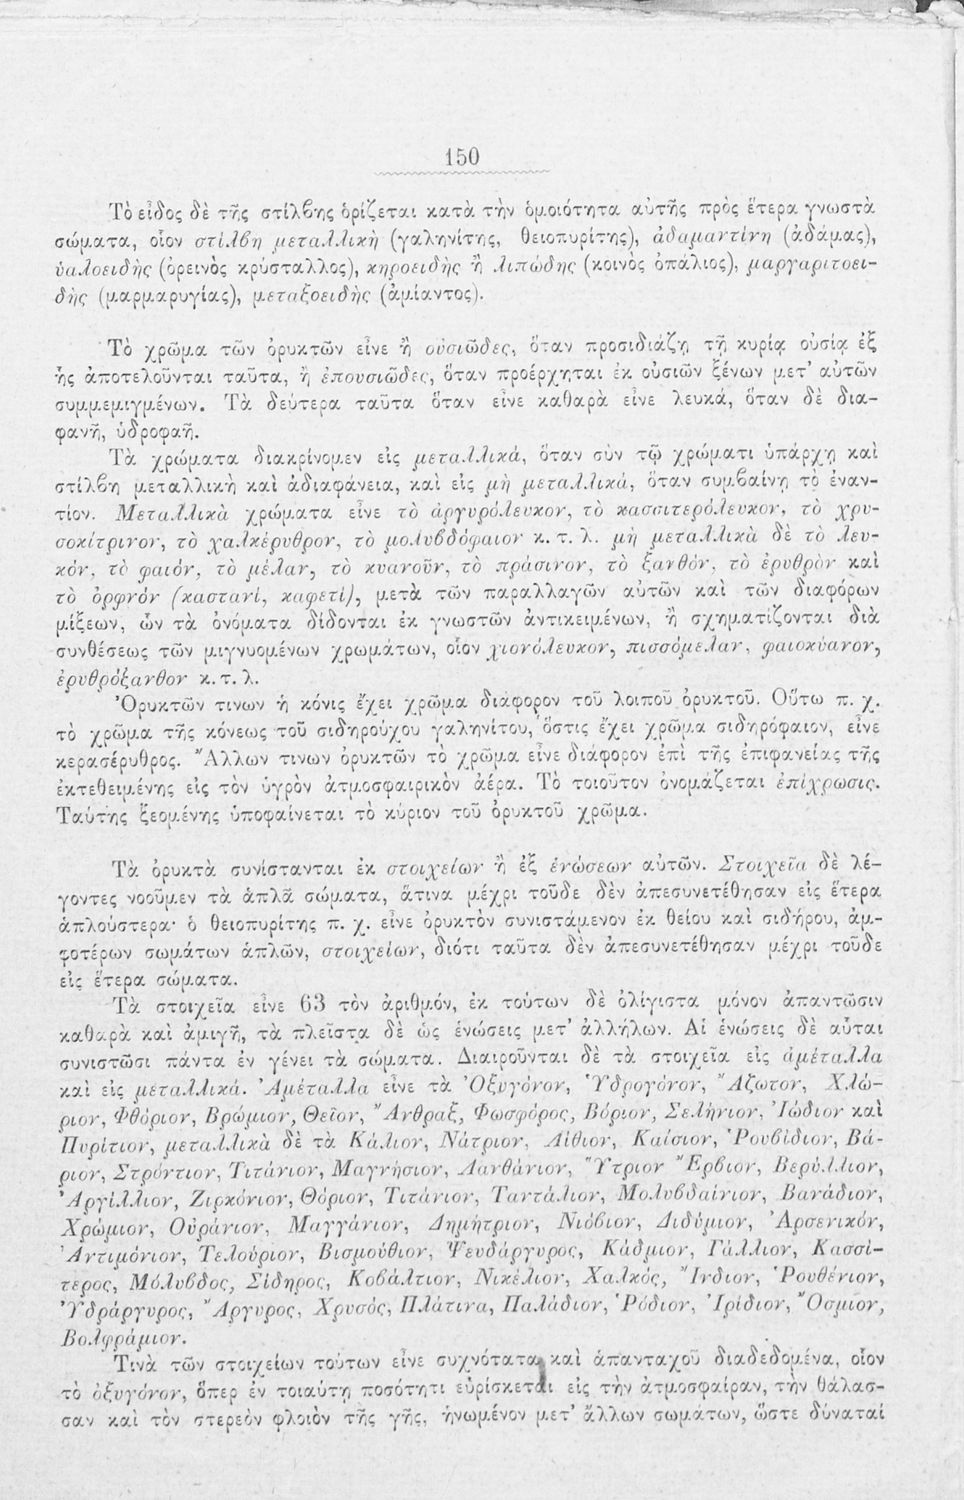 150
Τὸ εἶδος δὲ τῆς στίλβης ὁρίζεται κατὰ τὴν ὁμοιότητα αὐτῆς πρὸς ἕτερα γνωστὰ
σώματα, οἷον στίλβη μεταλλικὴ (γαληνίτης, θειοπυρίτης), ἀδαμαντίνη (ἀδάμας),
ὑαλοειδὴς (ὀρεινὸς κρύσταλλος), κηροειδὴς ἢ λιπώδης (κοινὸς ὀπάλιος), μαργαριτοει-
δὴς (μαρμαρυγίας), μεταξοειδὴς (ἀμίαντος).
Τὸ χρῶμα τῶν ὀρυκτῶν εἶνε ἢ οὐσιῶδες, ὅταν προσιδιάζῃ τῇ κυρίᾳ οὐσίᾳ ἐξ
ἧς ἀποτελοῦνται ταῦτα, ἢ ἐπουσιῶδες, ὅταν προέρχηται ἐκ οὐσιῶν ξένων μετ' αὐτῶν
συμμεμιγμένων. Τὰ δεύτερα ταῦτα ὅταν εἶνε καθαρὰ εἶνε λευκά, ὅταν δὲ δια-
φανῆ, ὑδροφαῆ.
Τὰ χρώματα διακρίνομεν εἰς μεταλλικά, ὅταν σὺν τῷ χρώματι ὑπάρχῃ καὶ
στίλβη μεταλλικὴ καὶ ἀδιαφάνεια, καὶ εἰς μὴ μεταλλικά, ὅταν συμβαίνῃ τὸ ἐναν-
τίον. Μεταλλικὰ χρώματα εἶνε τὸ ἀργυρόλευκον, τὸ κασσιτερόλευκον, τὸ χρυ-
σοκίτρινον, τὸ χαλκέρυθρον, τὸ μολυβδόφαιον κ. τ. λ. μὴ μεταλλικὰ δὲ τὸ λευ-
κόν, τὸ φαιόν, τὸ μέλαν, τὸ κυανοῦν, τὸ πράσινον, τὸ ξανθόν, τὸ ἐρυθρὸν καὶ
τὸ ὀρφνόν (καστανί, καφετί), μετὰ τῶν παραλλαγῶν αὐτῶν καὶ τῶν διαφόρων
μίξεων, ὧν τὰ ὀνόματα δίδονται ἐκ γνωστῶν ἀντικειμένων, ἢ σχηματίζονται διὰ
συνθέσεως τῶν μιγνυομένων χρωμάτων, οἷον χιονόλευκον, πισσόμελαν, φαιοκύανον,
ἐρυθρόξανθον κ. τ. λ.
Ὀρυκτῶν τινων ἡ κόνις ἔχει χρῶμα διάφορον τοῦ λοιποῦ ὀρυκτοῦ. Οὕτω π. χ.
τὸ χρῶμα τῆς κόνεως τοῦ σιδηρούχου γαληνίτου, ὅστις ἔχει χρῶμα σιδηρόφαιον, εἶνε
κερασέρυθρος. Ἄλλων τινων ὀρυκτῶν τὸ χρῶμα εἶνε διάφορον ἐπὶ τῆς ἐπιφανείας τῆς
ἐκτεθειμένης εἰς τὸν ὑγρὸν ἀτμοσφαιρικὸν ἀέρα. Τὸ τοιοῦτον ὀνομάζεται ἐπίχρωσις.
Ταύτης ξεομένης ὑποφαίνεται τὸ κύριον τοῦ ὀρυκτοῦ χρῶμα.
Τὰ ὀρυκτὰ συνίστανται ἐκ στοιχείων ἢ ἐξ ἑνώσεων αὐτῶν. Στοιχεῖα δὲ λέ-
γοντες νοοῦμεν τὰ ἁπλᾶ σώματα, ἅτινα μέχρι τοῦδε δὲν ἀπεσυνετέθησαν εἰς ἕτερα
ἁπλούστερα· ὁ θειοπυρίτης π. χ. εἶνε ὀρυκτὸν συνιστάμενον ἐκ θείου καὶ σιδήρου, ἀμ-
φοτέρων σωμάτων ἁπλῶν, στοιχείων, διότι ταῦτα δὲν ἀπεσυνετέθησαν μέχρι τοῦδε
εἰς ἕτερα σώματα.
Τὰ στοιχεῖα εἶνε 63 τὸν ἀριθμόν, ἐκ τούτων δὲ ὀλίγιστα μόνον ἀπαντῶσιν
καθαρὰ καὶ ἀμιγῆ, τὰ πλεῖστα δὲ ὡς ἑνώσεις μετ' ἀλλήλων. Αἱ ἑνώσεις δὲ αὗται
συνιστῶσι πάντα ἐν γένει τὰ σώματα. Διαιροῦνται δὲ τὰ στοιχεῖα εἰς ἀμέταλλα
καὶ εἰς μεταλλικά. Ἀμέταλλα εἶνε τὰ Ὀξυγόνον, Ὑδρογόνον, Ἄζωτον, Χλώ-
ριον, Φθόριον, Βρώμιον, Θεῖον, Ἄνθραξ, Φωσφόρος, Βόριον, Σελήνιον, Ἰώδιον καὶ
Πυρίτιον, μεταλλικὰ δὲ τὰ Κάλιον, Νάτριον, Λίθιον, Καίσιον, Ῥουβίδιον, Βά-
ριον, Στρόντιον, Τιτάνιον, Μαγνήσιον, Λανθάνιον, Ὕτριον Ἔρβιον, Βερύλλιον,
Ἀργίλλιον, Ζιρκόνιον, Θόριον, Τιτάνιον, Ταντάλιον, Μολυβδαίνιον, Βανάδιον,
Χρώμιον, Οὐράνιον, Μαγγάνιον, Δημήτριον, Νιόβιον, Διδύμιον, Ἀρσενικόν,
Ἀντιμόνιον, Τελούριον, Βισμούθιον, Ψευδάργυρος, Κάδμιον, Γάλλιον, Κασσί-
τερος, Μόλυβδος, Σίδηρος, Κοβάλτιον, Νικέλιον, Χαλκός, Ἴνδιον, Ῥουθένιον,
Ὑδράργυρος, Ἄργυρος, Χρυσός, Πλάτινα, Παλάδιον, Ῥόδιον, Ἰρίδιον, Ὄσμιον,
Βολφράμιον.
Τινὰ τῶν στοιχείων τούτων εἶνε συχνότατα καὶ ἁπανταχοῦ διαδεδομένα, οἷον
τὸ ὀξυγόνον, ὅπερ ἐν τοιαύτῃ ποσότητι εὑρίσκεται εἰς τὴν ἀτμοσφαίραν, τὴν θάλασ-
σαν καὶ τὸν στερεὸν φλοιὸν τῆς γῆς, ἡνωμένον μετ' ἄλλων σωμάτων, ὥστε δύναταί